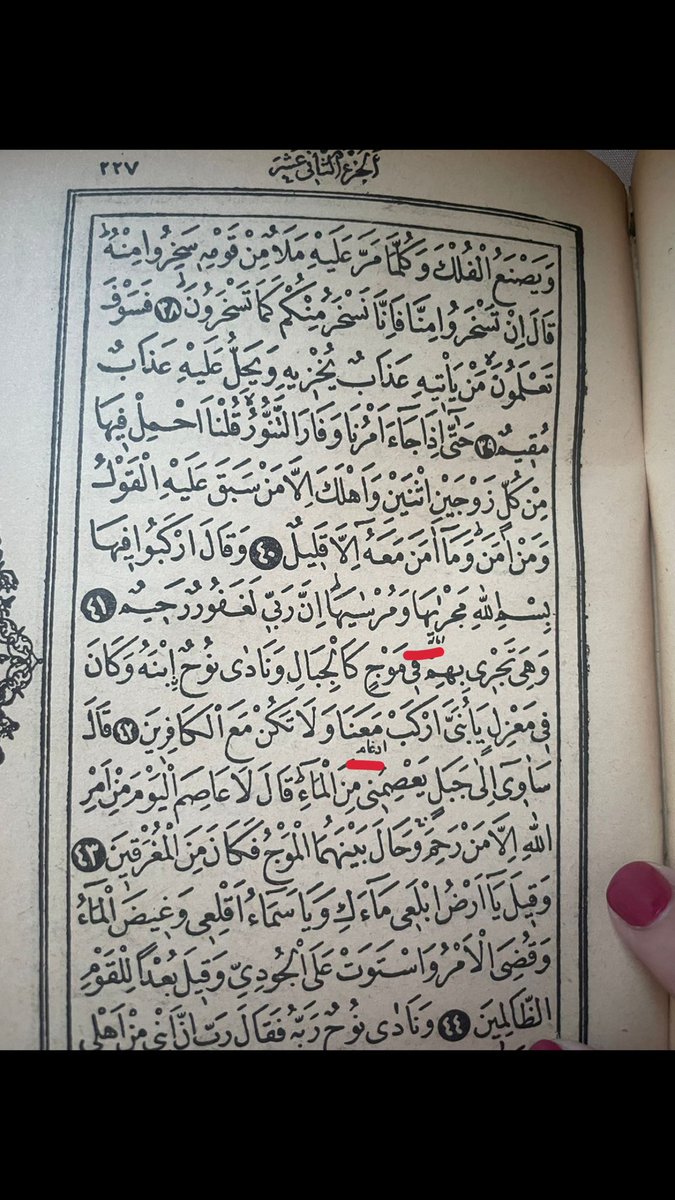 ٢٢٧
اَلْجُزْءُ الثَّانِى عَشَرَ
وَيَصْنَعُ الْفُلْكَ وَكُلَّمَا مَرَّ عَلَيْهِ مَلَأٌ مِنْ قَوْمِهِ سَخِرُوا مِنْهُ
قَالَ اِنْ تَسْخَرُوا مِنَّا فَاِنَّا نَسْخَرُ مِنْكُمْ كَمَا تَسْخَرُونَ ٣٨ فَسَوْفَ
تَعْلَمُونَ مَنْ يَأْتِيهِ عَذَابٌ يُخْزِيهِ وَيَحِلُّ عَلَيْهِ عَذَابٌ
مُقِيمٌ ٣٩ حَتّٰٓى اِذَا جَٓاءَ اَمْرُنَا وَفَارَ التَّنُّورُ قُلْنَا احْمِلْ فِيهَا
مِنْ كُلٍّ زَوْجَيْنِ اثْنَيْنِ وَاَهْلَكَ اِلَّا مَنْ سَبَقَ عَلَيْهِ الْقَوْلُ
وَمَنْ اٰمَنَ وَمَٓا اٰمَنَ مَعَهُٓ اِلَّا قَلِيلٌ ٤٠ وَقَالَ ارْكَبُوا فِيهَا
بِسْمِ اللّٰهِ مَجْرٰۭيهَا وَمُرْسٰيهَا اِنَّ رَبِّى لَغَفُورٌ رَحِيمٌ ٤١
وَهِىَ تَجْرِى بِهِمْ فِى مَوْجٍ كَالْجِبَالِ وَنَادٰى نُوحٌ اِبْنَهُ وَكَانَ
فِى مَعْزِلٍ يَا بُنَىَّ ارْكَبْ مَعَنَا وَلَا تَكُنْ مَعَ الْكَافِرِينَ ٤٢ قَالَ
ادغام
سَاٰوِٓى اِلٰى جَبَلٍ يَعْصِمُنِى مِنَ الْمَٓاءِ قَالَ لَا عَاصِمَ الْيَوْمَ مِنْ اَمْرِ
اللّٰهِ اِلَّا مَنْ رَحِمَ وَحَالَ بَيْنَهُمَا الْمَوْجُ فَكَانَ مِنَ الْمُغْرَقِينَ ٤٣
وَقِيلَ يَٓا اَرْضُ ابْلَعِى مَٓاءَكِ وَيَا سَمَٓاءُ اَقْلِعِى وَغِيضَ الْمَٓاءُ
وَقُضِىَ الْاَمْرُ وَاسْتَوَتْ عَلَى الْجُودِىِّ وَقِيلَ بُعْداً لِلْقَوْمِ
الظَّالِمِينَ ٤٤ وَنَادٰى نُوحٌ رَبَّهُ فَقَالَ رَبِّ اِنَّ ابْنِى مِنْ اَهْلِى